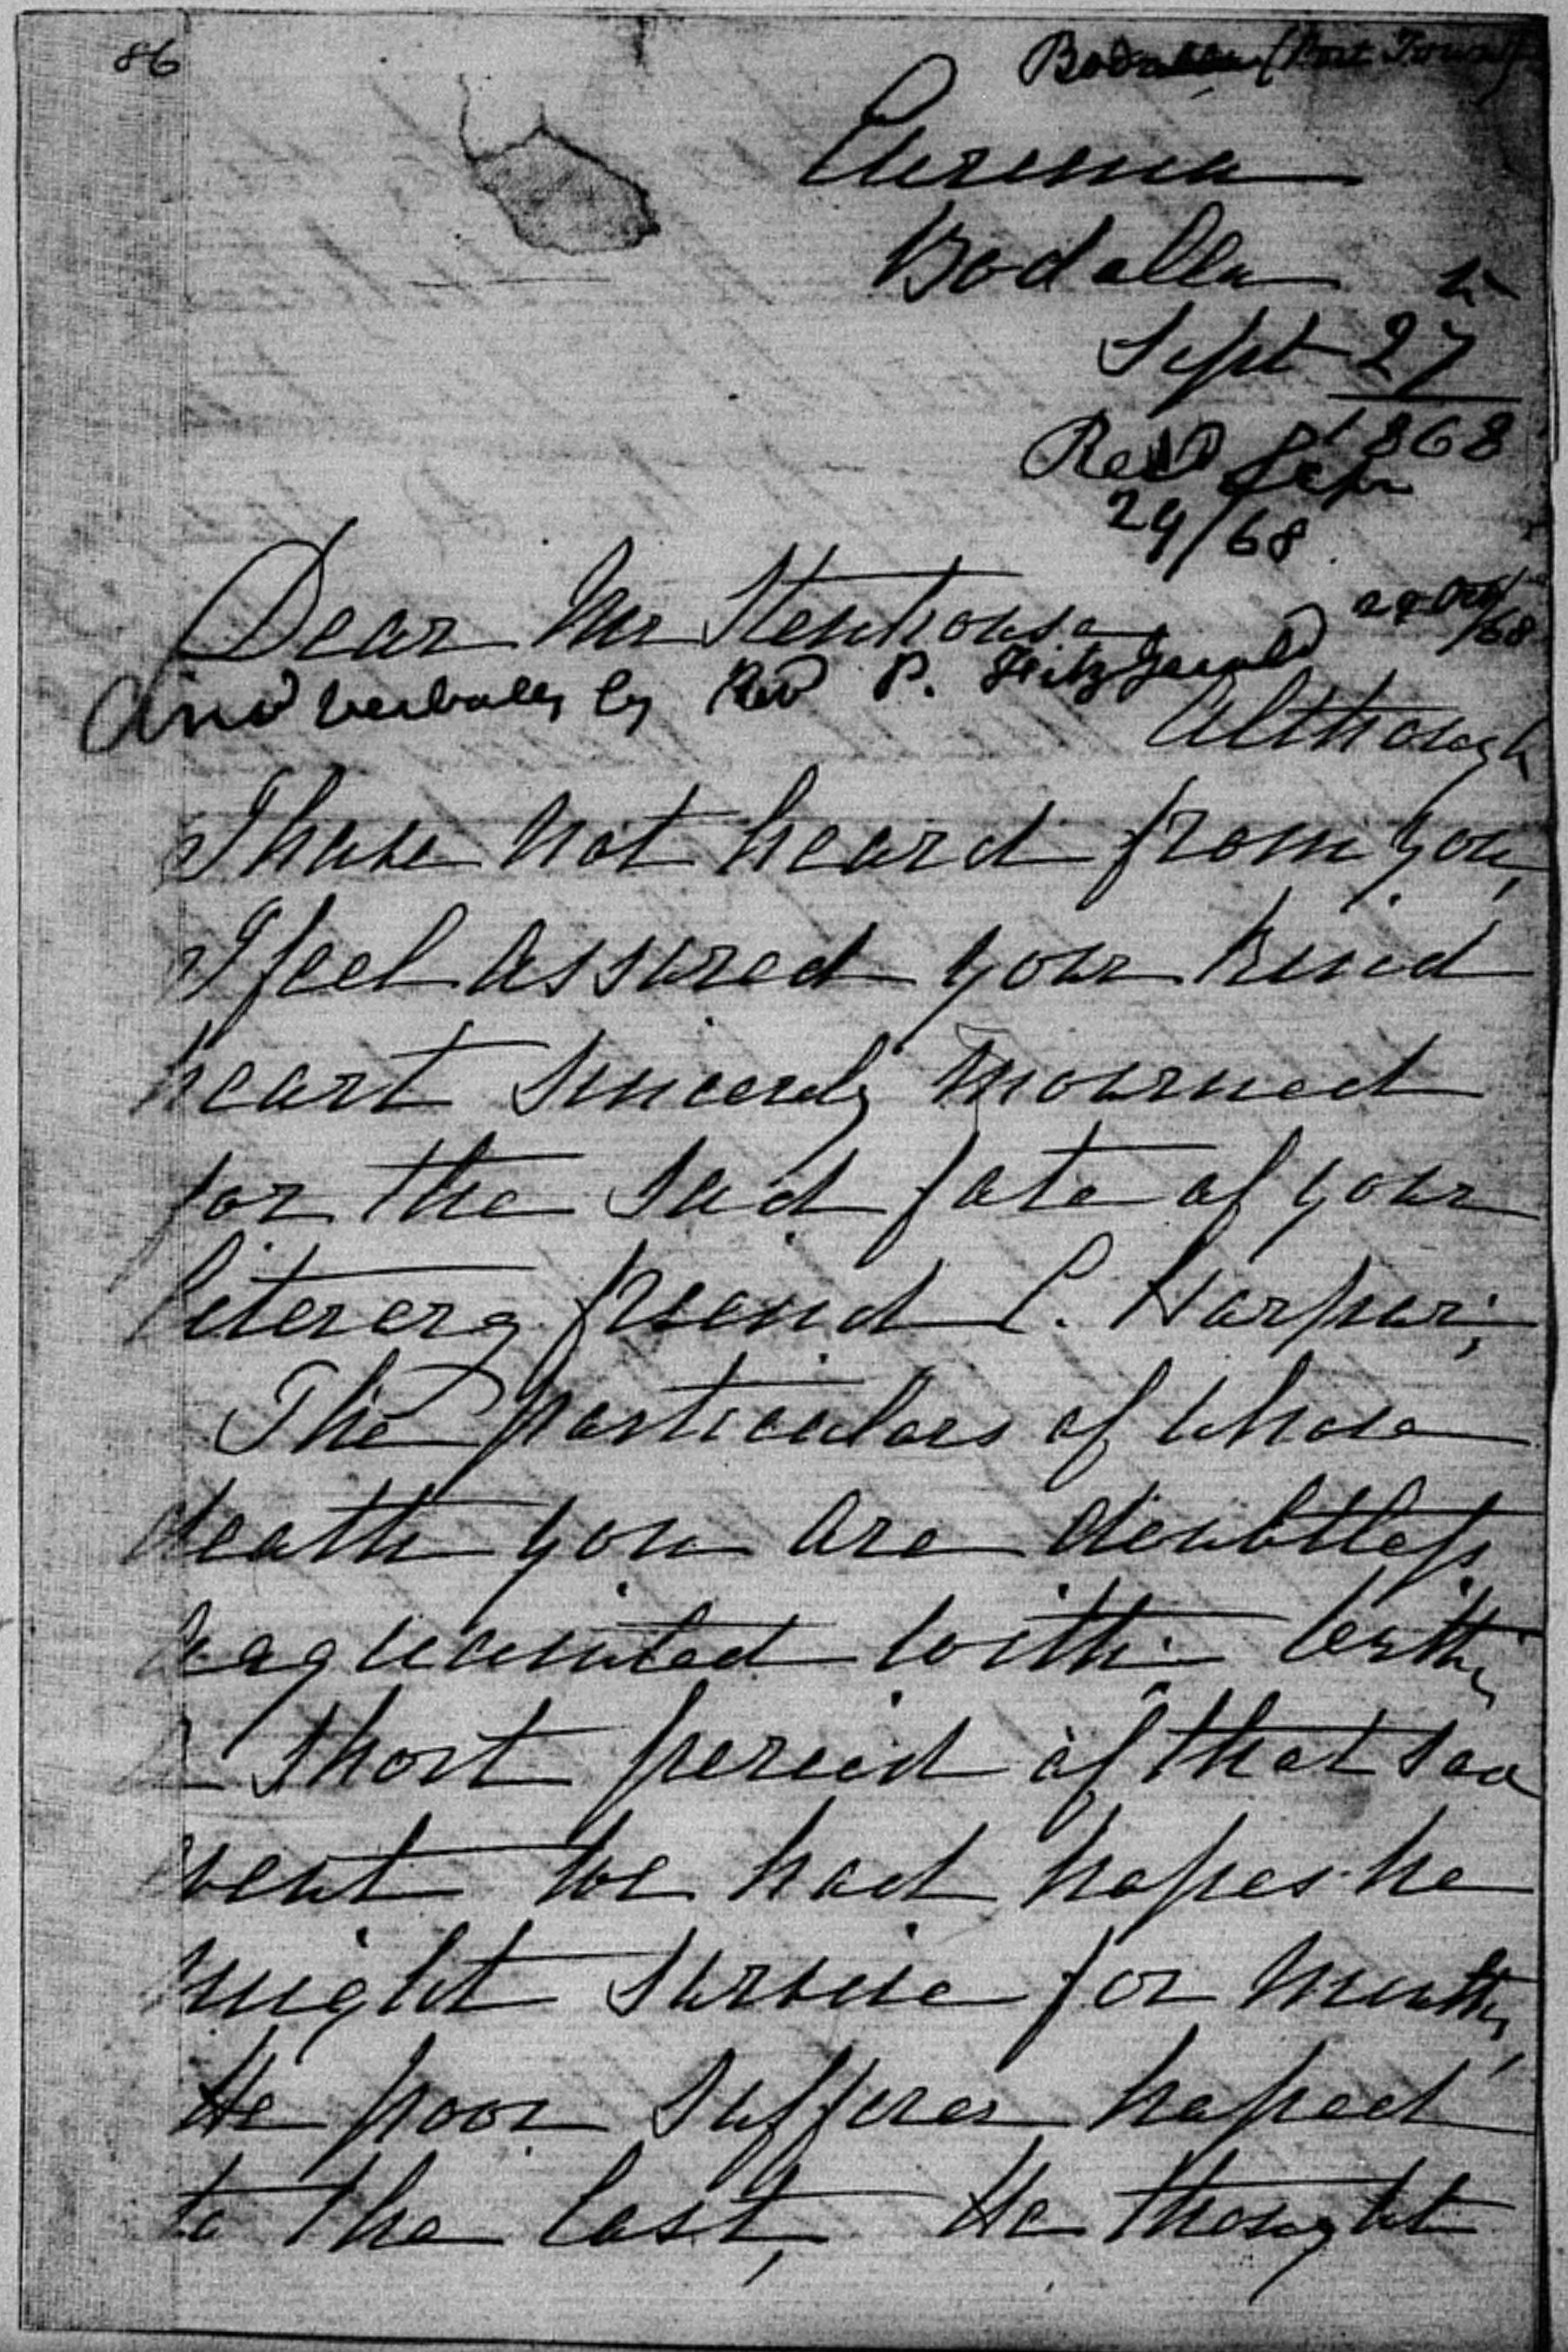 86
Bodalla (Post Town)
Eurema
Bodalla
Sept 27th
1868
Recd Sepr
29/68
Dear Mr Stenhouse
29 Oct/68
And verbally by Revd P. Fitzgerald
Although
I have not heard from you,
I feel assured your kind
heart sincerely mourned
for the sad fate of your
literery friend C. Harpur;
The particulars of whose
death you are doubtless
acquainted with. Withn
a short period of that sad
event we had hopes he
might survive for months,
He poor sufferer hoped
to the last, He thought